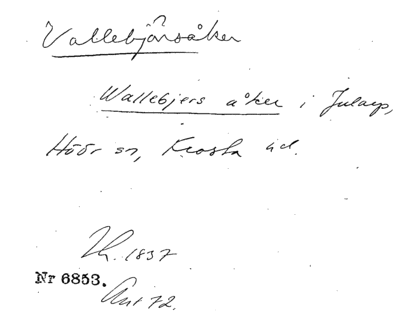 Vallebjörsåker
Wallebjers åker i Jularp,
Höör sn, Frosta hd.
Th. 1837
Nr 6853.
Ant 72.